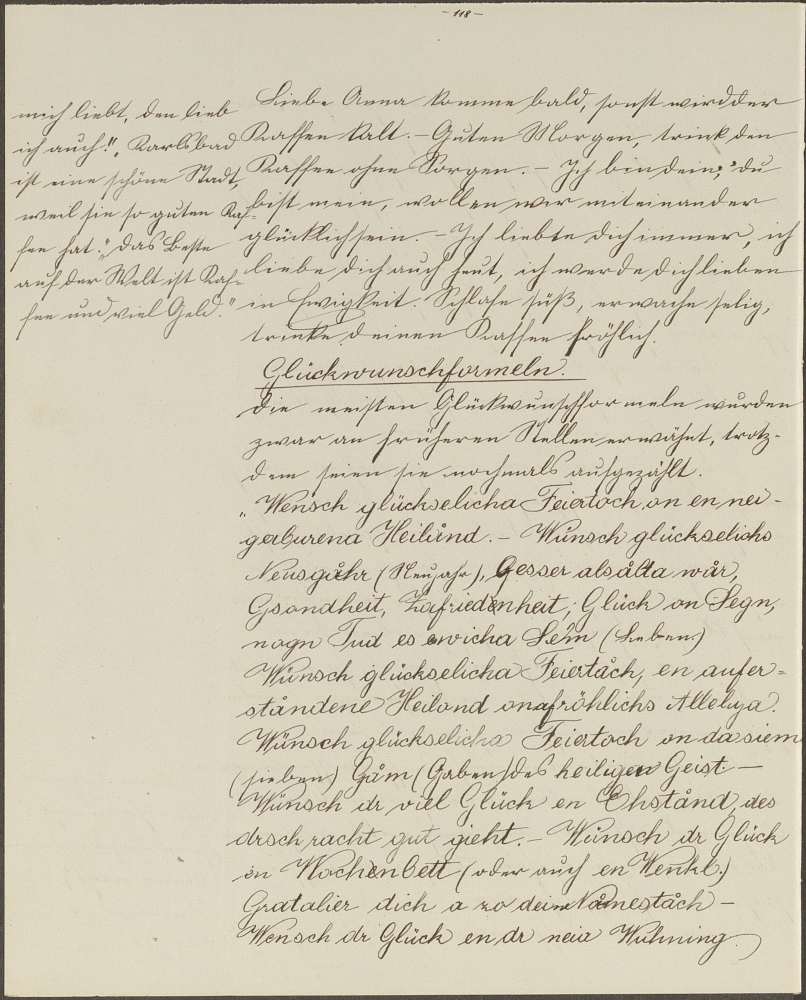 - 118 -
mich liebt, den lieb
ich auch!", Karlsbad
ist eine schöne Stadt,
weil sie so guten Kaf-
fee hat." Das Beste
auf der Welt ist Kaf-
fee und viel Geld."
Liebe Anna komme bald, sonst wird der
Kaffee kalt. - Guten Morgen, trink den
Kaffee ohne Sorgen. - Ich bin dein, du
bist mein, wollen wir miteinander
glücklich sein. - Ich liebte dich immer, ich
liebe dich auch heut, ich werde dich lieben
in Ewigkeit. Schlafe süß, erwache selig,
trinke deinen Kaffee fröhlich.
Glückwunschformeln.
Die meisten Glückwunschformeln wurden
zwar an früheren Stellen erwähnt, trotz-
dem seien sie nochmals aufgezählt.
"Wensch glückselicha Feiertoch, on en nei-
geburena Heilånd. - Wünsch glückselichs
Neusgåhr (Neujahr), Gesser als ålta wår,
Gsondheit, Zafriedenheit, Glück on Segn,
nogn Tud es ewicha Lem (Leben)
Wünsch glückselicha Feiertåch, en aufer-
ståndene Heiland on a fröhlichs Alleluja.
Wünsch glückselicha Feiertoch on da siem
(sieben) Gåm (Gaben) des heiligen Geist -
Wünsch dr viel Glück en Ehstånd, des
drsch racht gut gieht. - Wünsch dr Glück
in Wochenbett (oder auch en Wenkl.)
Gratalier dich a zo dein Nåmeståch -
Wensch dr Glück en dr neia Wuhning.